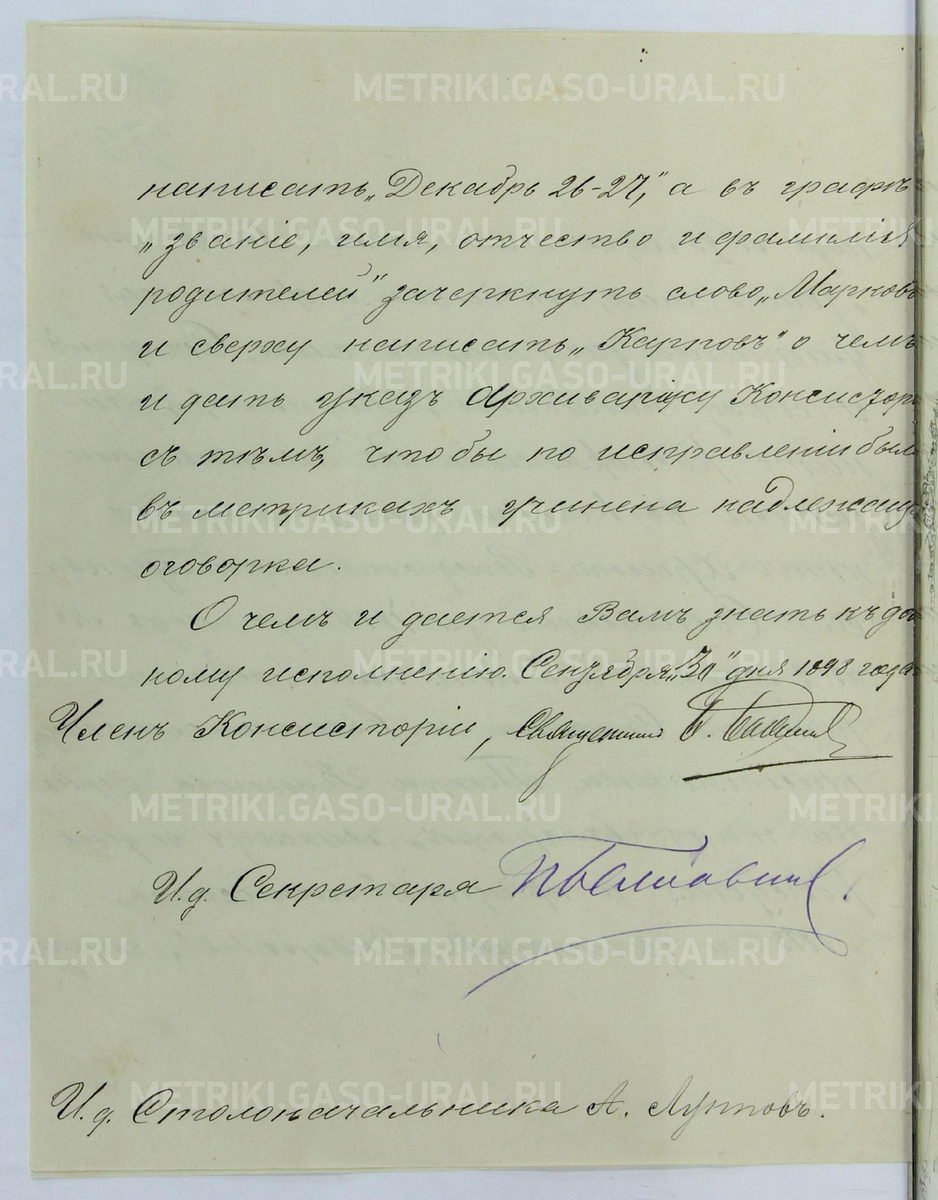 написать „Декабрь 26-27,“ а въ графѣ
„званіе, имя, отчество и фамилія
родителей“ зачеркнуть слово „Марковъ
и сверху написать „Карповъ“ о чемъ
и дать указъ Архиваріусу Консистор
съ тѣмъ, чтобы по исправленіи был
въ метрикахъ учинена надлежащ
оговорка.
О чемъ и дается Вамъ знать къ дол
ному исполненію. Сентября „30“ дня 1898 года.
Членъ Консисторіи, Священникъ
И. д. Секретаря
И. д. Столоначальника А. Лупповъ.
METRIKI.GASO-URAL.RU